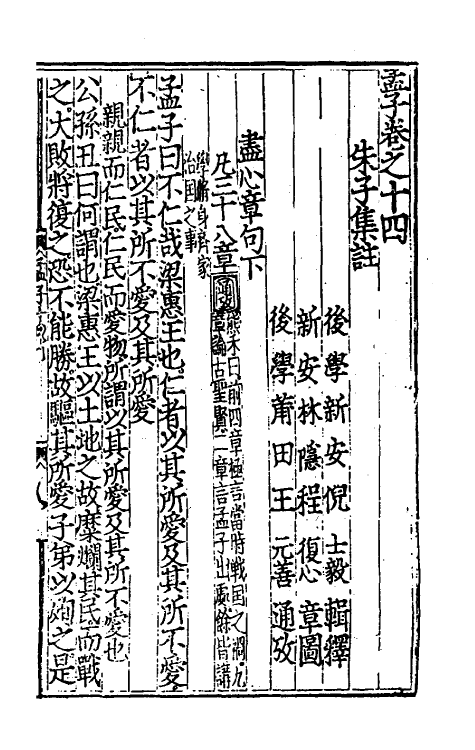 孟子卷之十四
朱子集註
後學新安倪士毅輯釋
新安林隱程復心章圖
後學莆田王元善通攷
盡心章句下
凡三十八章熊禾曰前四章極言當時戰国之禍九
章論古聖賢二章言孟子出處餘皆講
學脩身齊家
治国之事
孟子曰不仁哉梁惠王也仁者以其所愛及其所不愛
不仁者以其所不愛及其所愛
親親而仁民仁民而愛物所謂以其所愛及其所不愛也
公孫丑曰何謂也梁惠王以土地之故糜爛其民而戰
之大敗將復之恐不能勝故驅其所愛子弟以殉之是